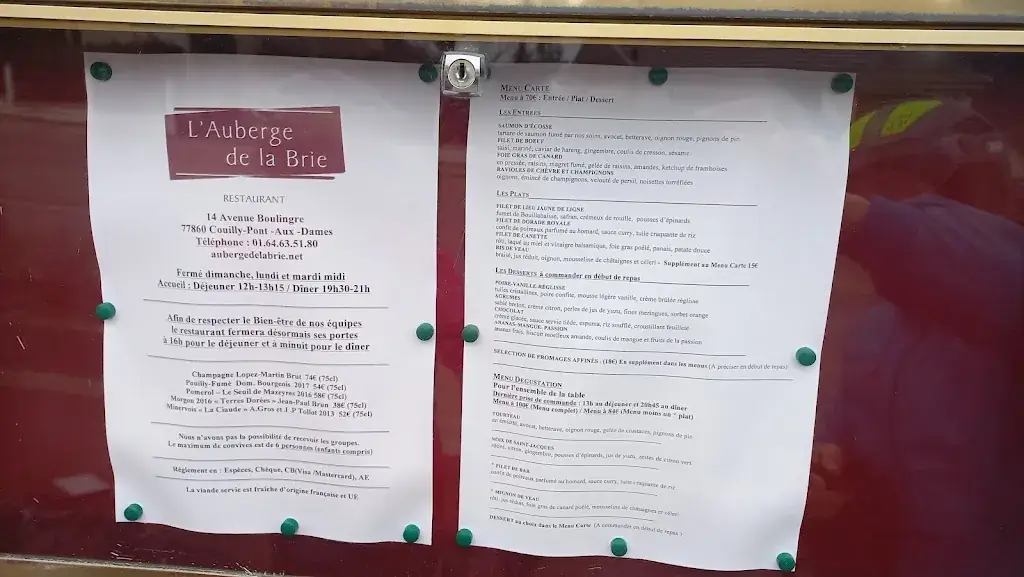 L'Auberge
de la Brie
RESTAURANT
14 Avenue Boulingre
77860 Couilly-Pont -Aux -Dames
Téléphone : 01.64.63.51.80
aubergedelabrie.net
Fermé dimanche, lundi et mardi midi
Accueil : Déjeuner 12h-13h15 / Dîner 19h30-21h
Afin de respecter le Bien-être de nos équipes
le restaurant fermera désormais ses portes
à 16h pour le déjeuner et à minuit pour le dîner
Champagne Lopez-Martin Brut 74€ (75cl)
Pouilly-Fumé Dom. Bourgeois 2017 54€ (75cl)
Pomerol – Le Seuil de Mazeyres 2016 58€ (75cl)
Morgon 2016 « Terres Dorées » Jean-Paul Brun 38€ (75cl)
Minervois « La Ciaude » A.Gros et J.P Tollot 2013 52€ (75cl)
Nous n'avons pas la possibilité de recevoir les groupes.
Le maximum de convives est de 6 personnes (enfants compris)
Règlement en : Espèces, Chèque, CB(Visa /Mastercard), AE
La viande servie est fraîche d'origine française et UE
MENU CARTE
Menu à 70€ : Entrée / Plat / Dessert
LES ENTREES
SAUMON D'ÉCOSSE
tartare de saumon fumé par nos soins, avocat, betterave, oignon rouge, pignons de pin
FILET DE BOEUF
saisi, mariné, caviar de hareng, gingembre, coulis de cresson, sésame
FOIE GRAS DE CANARD
en pressée, raisins, magret fumé, gelée de raisins, amandes, ketchup de framboises
RAVIOLES DE CHÈVRE ET CHAMPIGNONS
oignons, émincé de champignons, velouté de persil, noisettes torréfiées
LES PLATS
FILET DE LIEU JAUNE DE LIGNE
fumet de Bouillabaisse, safran, crémeux de rouille, pousses d'épinards
FILET DE DORADE ROYALE
confit de poireaux parfumé au homard, sauce curry, tuile craquante de riz
FILET DE CANETTE
rôti, laqué au miel et vinaigre balsamique, foie gras poêlé, panais, patate douce
RIS DE VEAU
braisé, jus réduit, oignon, mousseline de châtaignes et céleri - Supplément au Menu Carte 15€
LES DESSERTS à commander en début de repas
POIRE-VANILLE-RÉGLISSE
tuiles cristallines, poire confite, mousse légère vanille, crème brûlée réglisse
AGRUMES
sablé breton, crème citron, perles de jus de yuzu, fines meringues, sorbet orange
CHOCOLAT
crème glacée, sauce servie tiède, espuma, riz soufflé, croustillant feuilleté
ANANAS- MANGUE- PASSION
ananas frais, biscuit moelleux amande, coulis de mangue et fruits de la passion
SELECTION DE FROMAGES AFFINÉS : (18€) En supplément dans les menus (A préciser en début de repas)
MENU DEGUSTATION
Pour l'ensemble de la table
Dernière prise de commande : 13h au déjeuner et 20h45 au dîner
Menu à 100€ (Menu complet) / Menu à 84€ (Menu moins un * plat)
TOURTEAU
en émietté, avocat, betterave, oignon rouge, gelée de crustacés, pignons de pin
NOIX DE SAINT-JACQUES
citron, gingembre, pousses d'épinards, jus de yuzu, zestes de citron vert
* FILET DE BAR
confit de poireaux, parfumé au homard, sauce curry, tuile craquante de riz
* MIGNON DE VEAU
rôti, jus réduit, foie gras de canard poêlé, mousseline de châtaignes et céleri
DESSERT au choix dans le Menu Carte (A commander en début de repas )